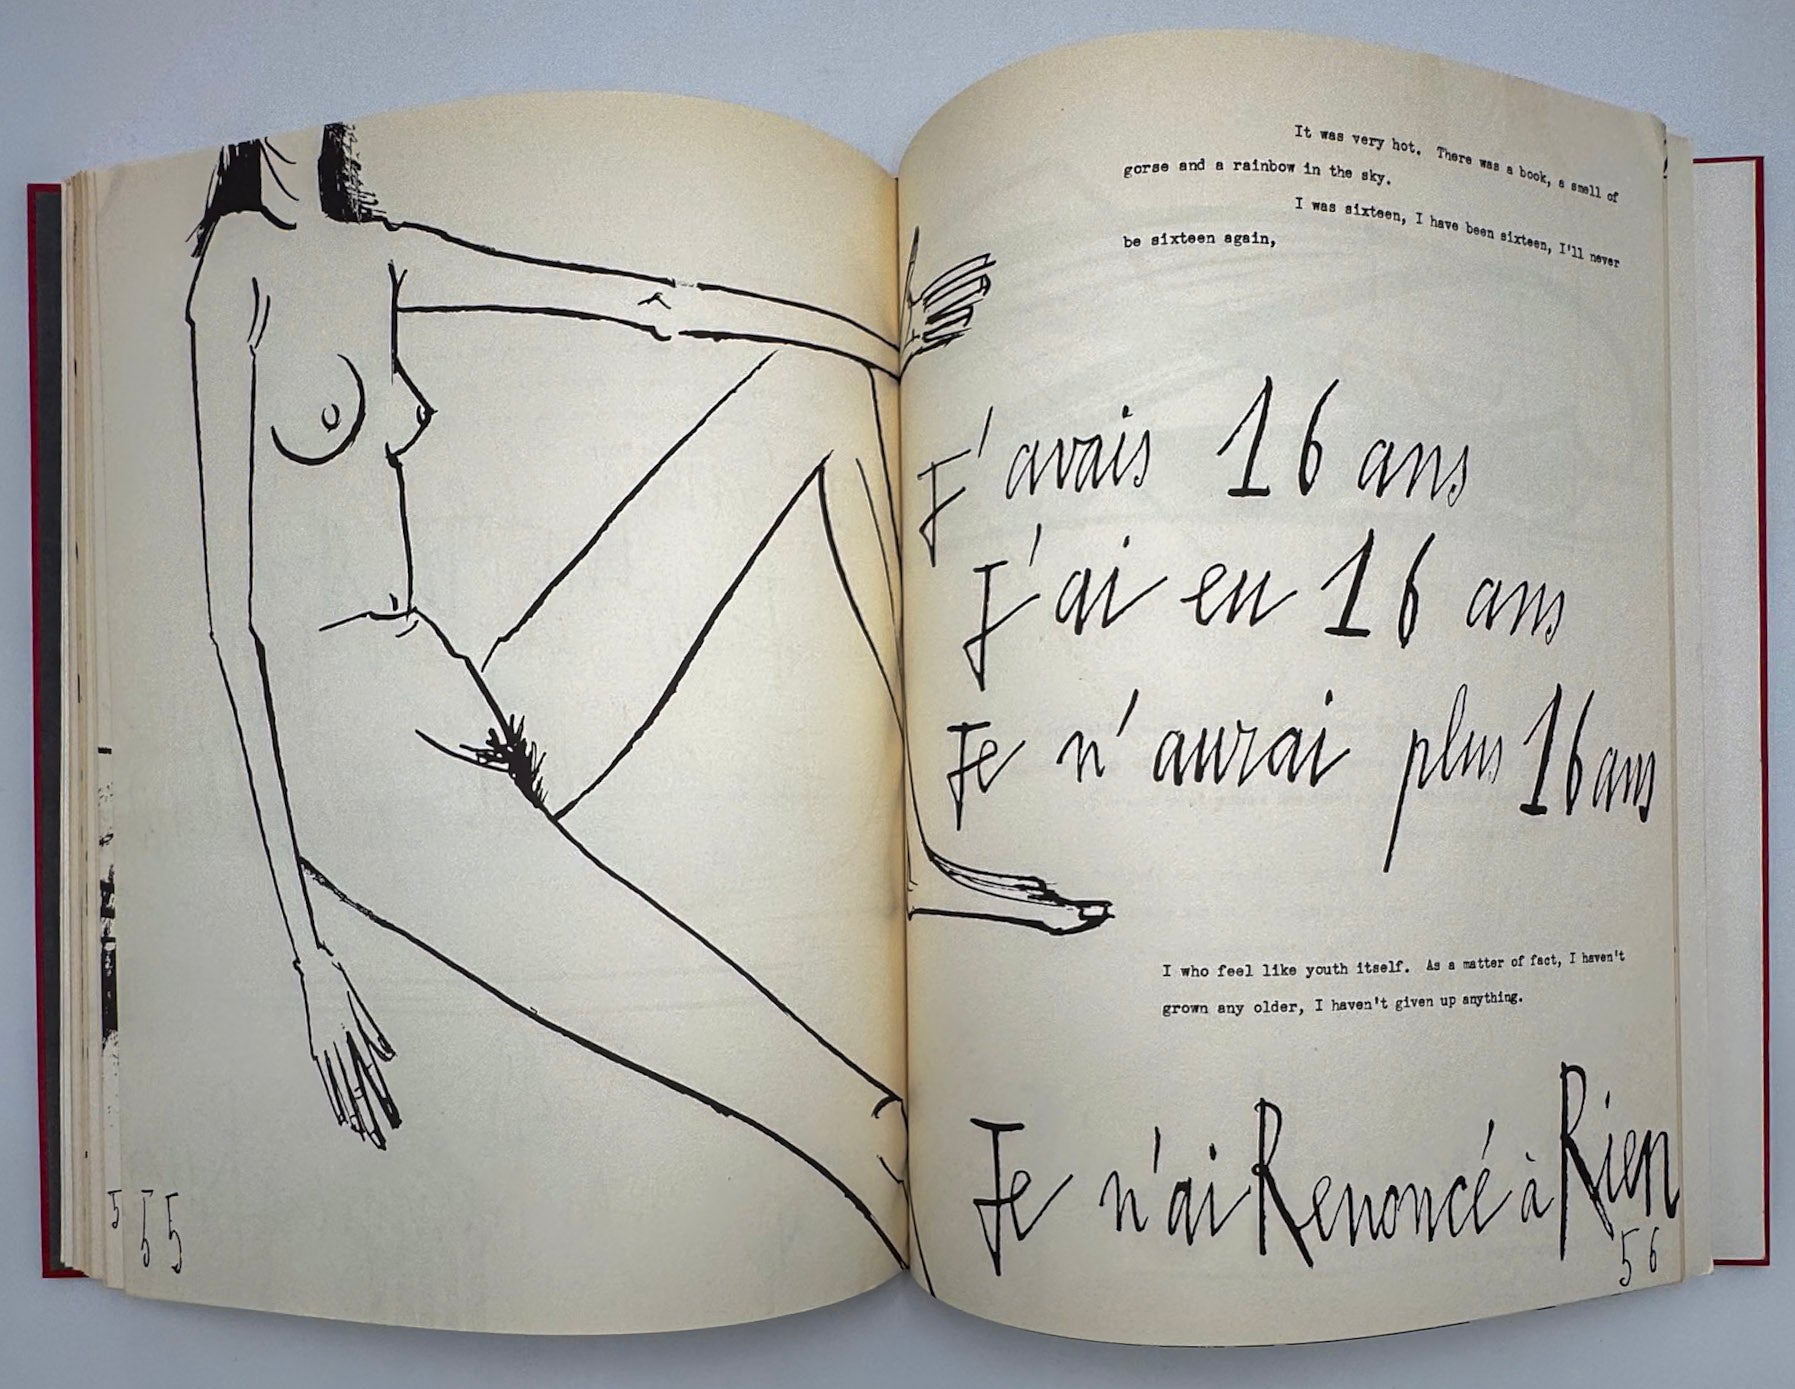 It was very hot. There was a book, a smell of
gorse and a rainbow in the sky.
I was sixteen, I have been sixteen, I'll never
be sixteen again,
J'avais 16 ans
J'ai eu 16 ans
Je n'aurai plus 16 ans
I who feel like youth itself. As a matter of fact, I haven't
grown any older, I haven't given up anything.
Je n'ai Renoncé à Rien
5 55
56